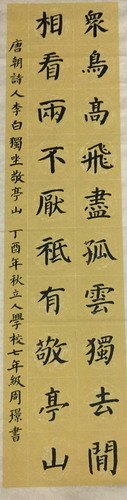 眾鳥高飛盡孤雲獨去閒
相看兩不厭祗有敬亭山
唐朝詩人李白獨坐敬亭山丁酉年秋立人學校七年級周璟書